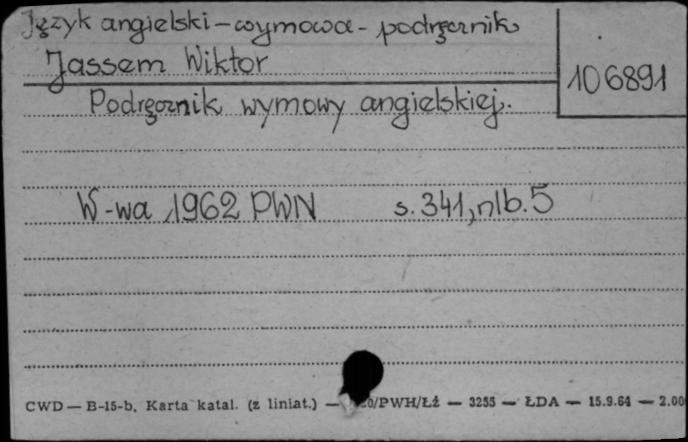 Język angielski - wymowa - podręcznik
Jassem Wiktor
106891
Podręcznik wymowy angielskiej.
W-wa, 1962 PWN s. 341, nlb. 5
CWD — B-15-b, Karta katal. (z liniat.) — /PWH/Łż — 3255 — ŁDA — 15.9.64 — 2.00